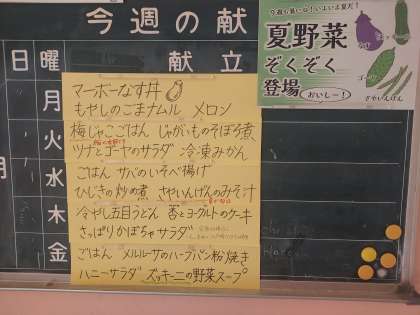 今週の献
日 曜 献立
今週も暑いなぁ!いよいよ夏だ!
夏野菜
ぞくぞく
登場
おいしー!
なす
ゴーヤ
さやいんげん
月
マーボーなす丼
もやしのごまナムル メロン
火
梅じゃこごはん じゃがいものそぼろ煮
ツナとゴーヤのサラダ 冷凍みかん
水
ごはん サバのいそべ揚げ
ひじきの炒め煮 さやいんげんのみそ汁
木
冷やし五目うどん 杏とヨーグルトのケーキ
さっぱりかぼちゃサラダ
金
ごはん メルルーサのハーブパン粉焼き
ハニーサラダ ズッキーニの野菜スープ
月